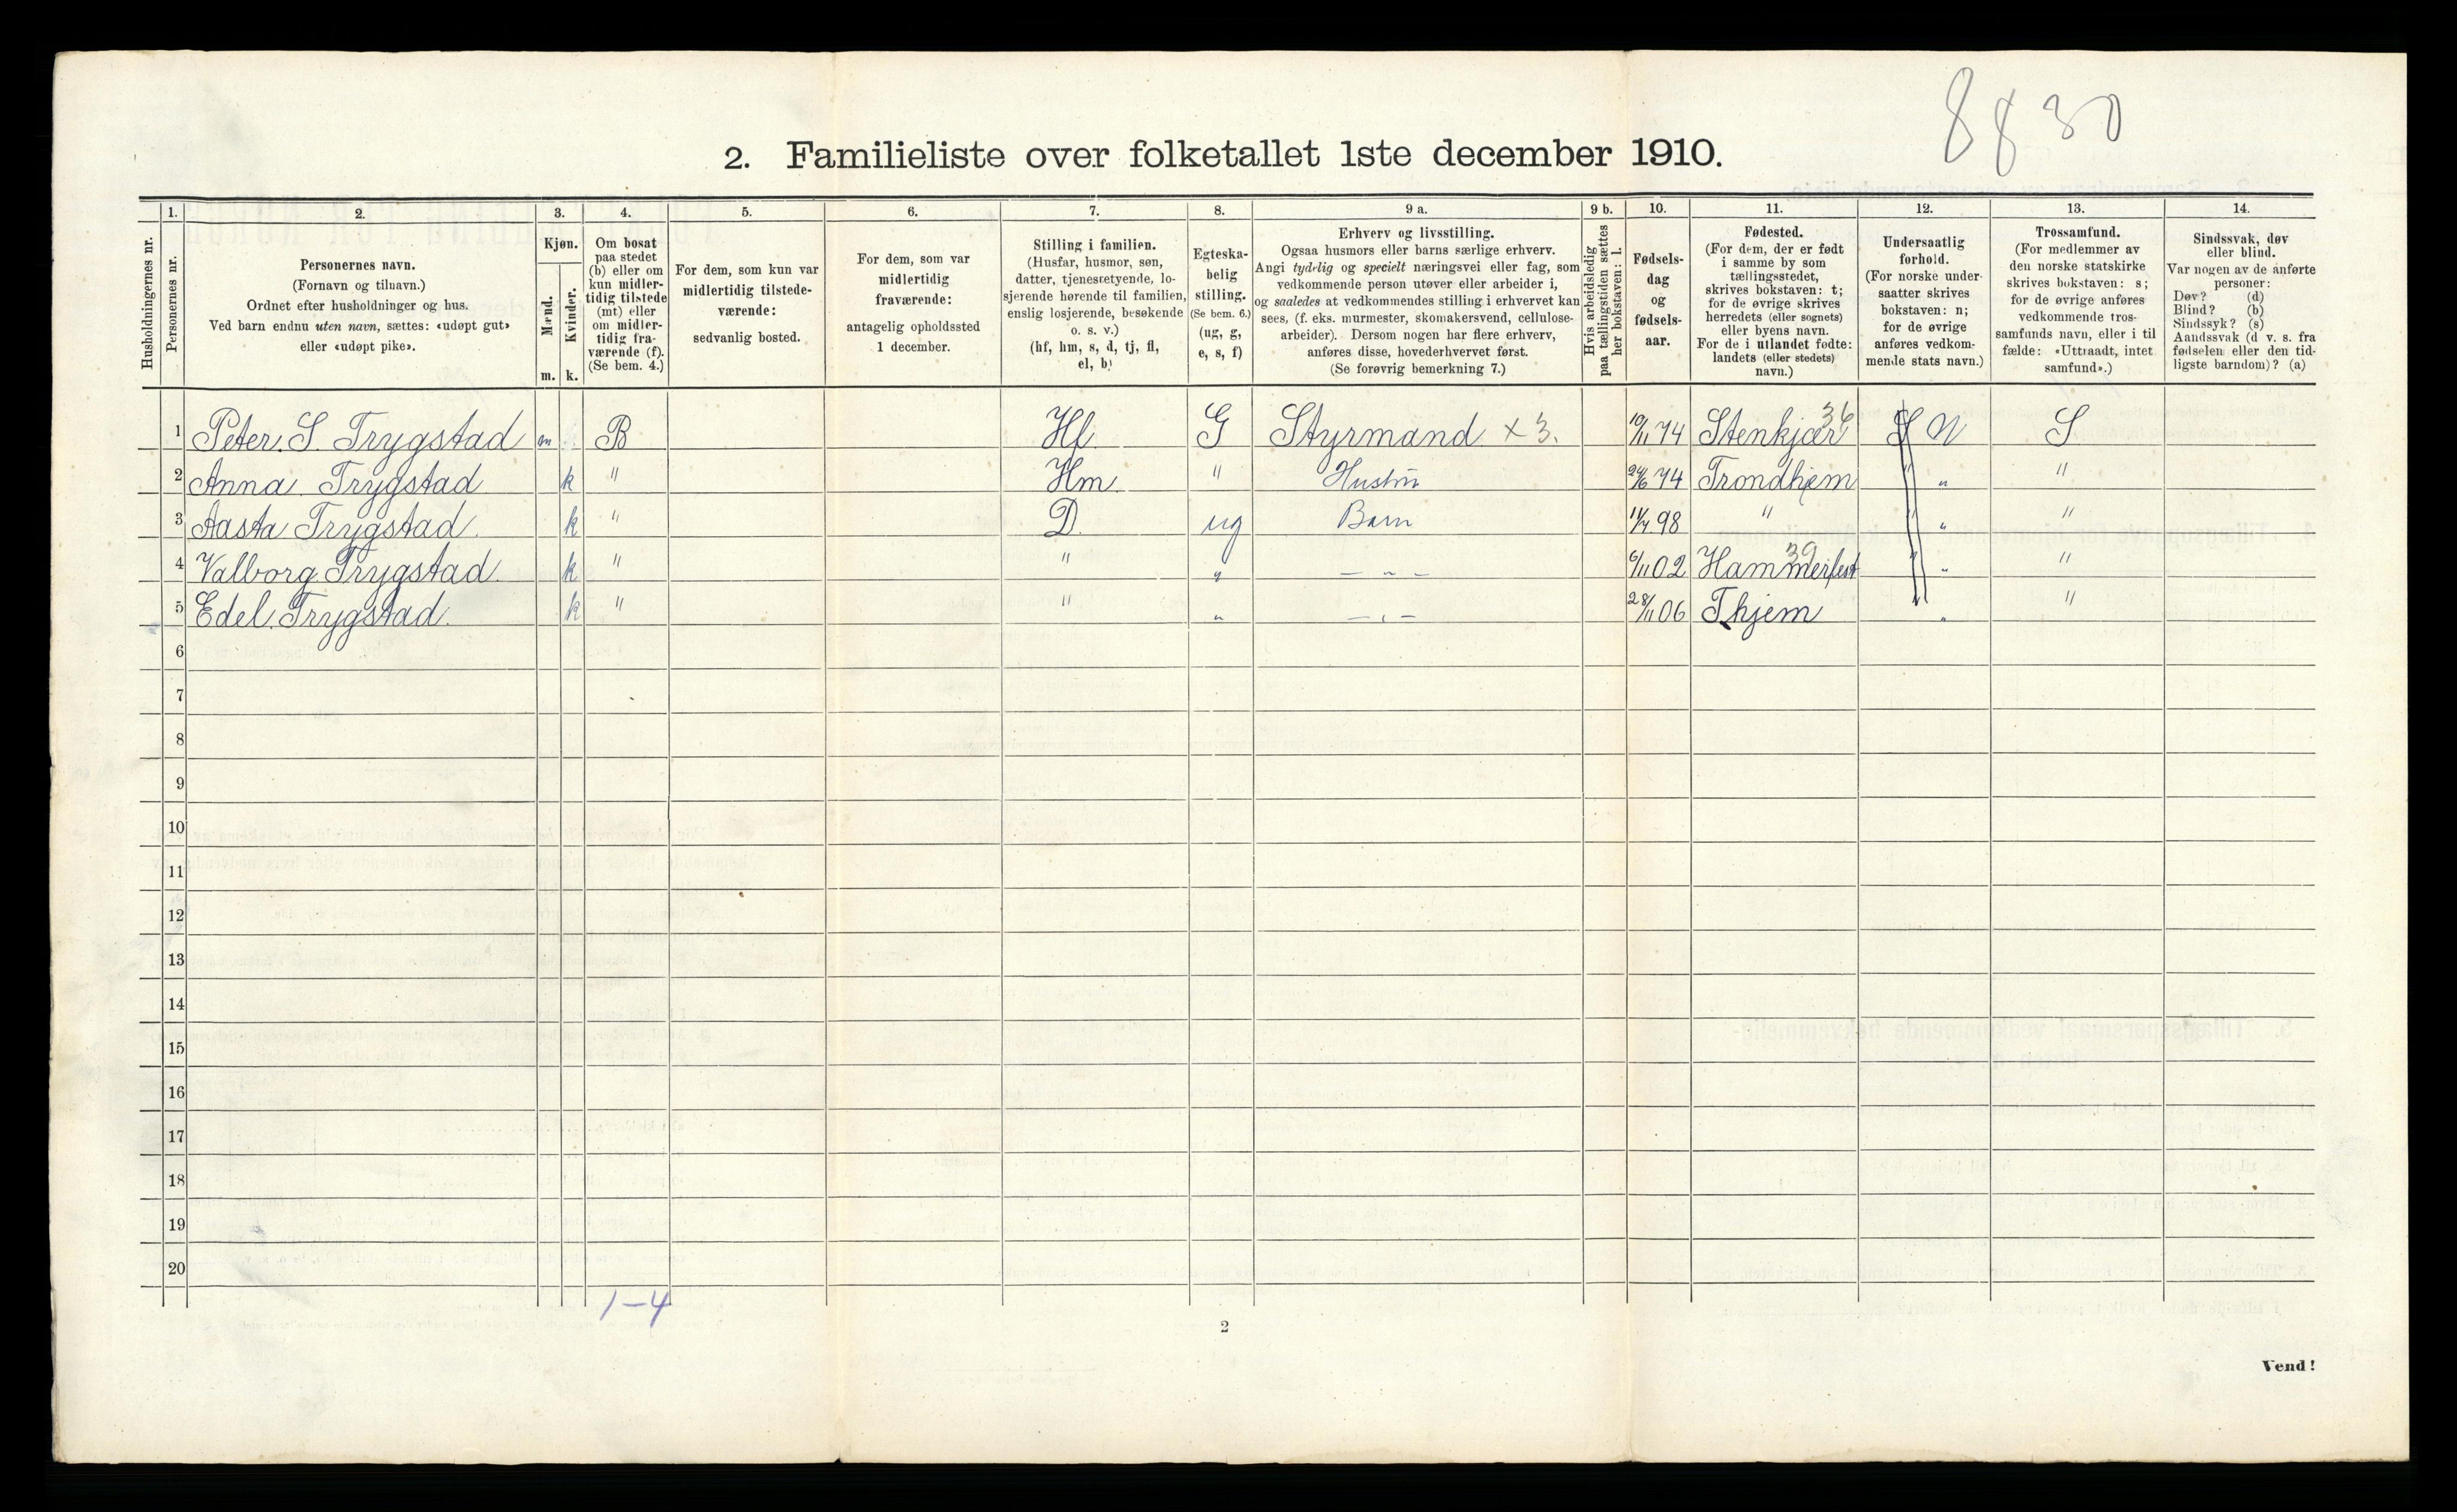 8830
2. Familieliste over folketallet 1ste december 1910.
1. 2. 3. 4. 5. 6. 7. 8. 9 a. 9 b. 10. 11. 12. 13. 14.
Husholdningernes nr.
Personernes nr.
Personernes navn.
(Fornavn og tilnavn.)
Ordnet efter husholdninger og hus.
Ved barn endnu uten navn, sættes: «udøpt gut»
eller «udøpt pike».
Kjøn.
Mænd.
Kvinder.
m. k.
Om bosat
paa stedet
(b) eller om
kun midler-
tidig tilstede
(mt) eller
om midler-
tidig fra-
værende (f).
(Se bem. 4.)
For dem, som kun var
midlertidig tilstede-
værende:
sedvanlig bosted.
For dem, som var
midlertidig
fraværende:
antagelig opholdssted
1 december.
Stilling i familien.
(Husfar, husmor, søn,
datter, tjenestetyende, lo-
sjerende hørende til familien,
enslig losjerende, besøkende
o. s. v.)
(hf, hm, s, d, tj, fl,
el, b)
Egteska-
belig
stilling.
(Se bem. 6.)
(ug, g,
e, s, f)
Erhverv og livsstilling.
Ogsaa husmors eller barns særlige erhverv.
Angi tydelig og specielt næringsvei eller fag, som
vedkommende person utøver eller arbeider i,
og saaledes at vedkommendes stilling i erhvervet kan
sees, (f. eks. murmester, skomakersvend, cellulose-
arbeider). Dersom nogen har flere erhverv,
anføres disse, hovederhvervet først.
(Se forøvrig bemerkning 7.)
Hvis arbeidsledig
paa tællingstiden sættes
her bokstaven: l.
Fødsels-
dag
og
fødsels-
aar.
Fødested.
(For dem, der er født
i samme by som
tællingsstedet,
skrives bokstaven: t;
for de øvrige skrives
herredets (eller sognets)
eller byens navn.
For de i utlandet fødte:
landets (eller stedets)
navn.)
Undersaatlig
forhold.
(For norske under-
saatter skrives
bokstaven: n;
for de øvrige
anføres vedkom-
mende stats navn.)
Trossamfund.
(For medlemmer av
den norske statskirke
skrives bokstaven: s;
for de øvrige anføres
vedkommende tros-
samfunds navn, eller i til
fælde: «Uttraadt, intet
samfund».)
Sindssvak, døv
eller blind.
Var nogen av de anførte
personer:
Døv? (d)
Blind? (b)
Sindssyk? (s)
Aandssvak (d v. s. fra
fødselen eller den tid-
ligste barndom)? (a)
1 Peter. S. Trygstad m B Hf G Styrmand x 3. 10/11 74 Stenkjær 36 S N S
2 Anna Trygstad k " Hm " Hustru 24/6 74 Trondhjem " " "
3 Aasta Trygstad k " D. ug Barn 11/7 98 " " " "
4 Valborg Trygstad k " " " — " — 6/11 02 Hammerfest 39 " " "
5 Edel Trygstad k " " " — " — 28/11 06 Thjem " " "
6
7
8
9
10
11
12
13
14
15
16
17
18
19
20
1-4
2
Vend!